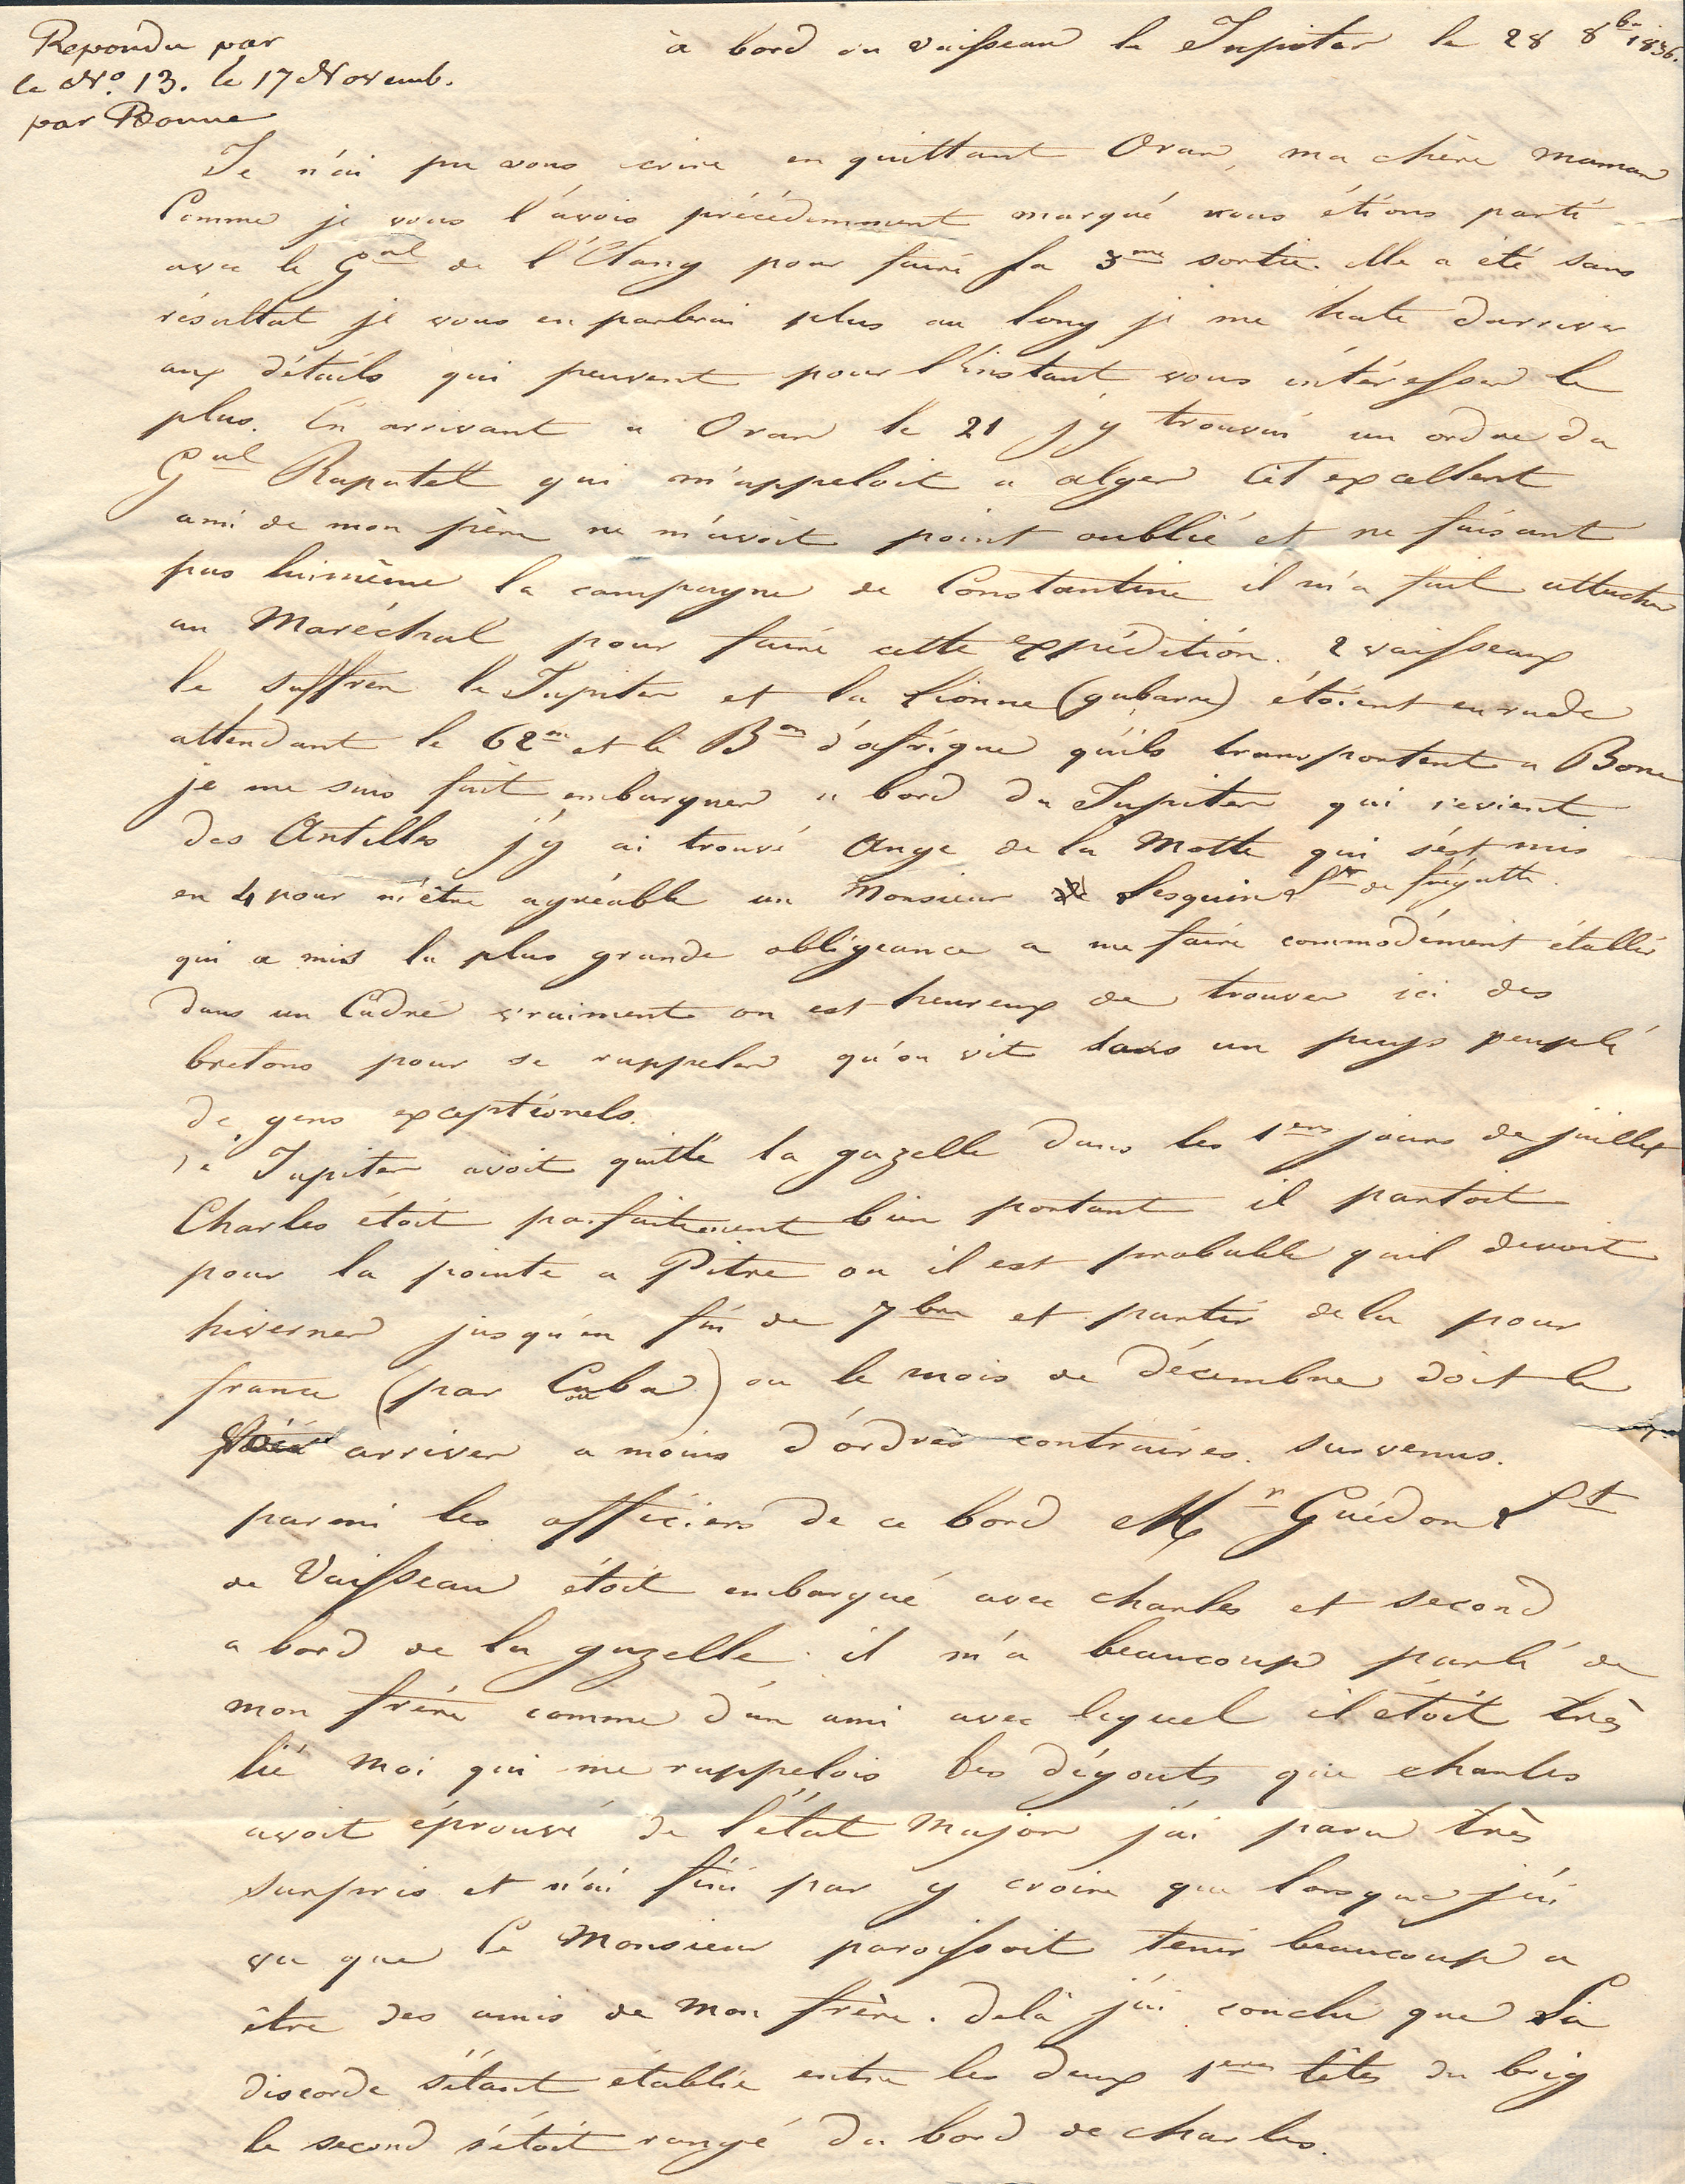 Repondu par
le N.º 13. le 17 Novemb.
par Bonne
à bord du vaisseau le Jupiter le 28 8bre 1836.
Je n'ai pu vous ecrire en quittant Oran, ma chère maman
Comme je vous l'avois précédemment marqué nous étions parti
avec le Gnal de l'Etang pour faire sa 3me sortie. elle a été sans
résultat je vous en parlerai plus au long je me hate d'arriver
aux détails qui peuvent pour l'instant vous intéresser le
plus. En arrivant a Oran le 21 j'y trouvai un ordre du
Gnal Rapatel qui m'appeloit a alger cet excellent
ami de mon père ne m'avoit point oublié et ne faisant
pas luimême la campagne de Constantine il m'a fait attacher
au Maréchal pour faire cette expédition. 2 vaisseaux
le suffren le Jupiter et la Lionne (gabarre) étoient en rade
attendant le 62me et le Bon d'afrique qu'ils transportent a Bone
je me suis fait embarquer a bord du Jupiter qui revient
des Antilles j'y ai trouvé Ange de la Motte qui s'est mis
en 4 pour m'être agréable un Monsieur Lesquin Lt de frégatte.
qui a mis la plus grande obligeance a me faire commodément établir
dans un Cadre vraiment on est heureux de trouver ici des
bretons pour se rappeler qu'on vit dans un pays peuplé
de gens exceptionels.
Le Jupiter avoit quitté la gazelle dans les 1ers jours de juillet
Charles étoit parfaitement bien portant il partoit
pour la pointe a Pitre ou il est probable qu'il devoit
hiverner jusqu'en fin de 7bre et partir de la pour
france (par Cuba) ou le mois de décembre doit le
voir arriver a moins d'ordres contraires survenus.
parmi les officiers de ce bord Mr Guédon Lt
de Vaisseau étoit embarqué avec charles et second
a bord de la gazelle. il m'a beaucoup parlé de
mon frère comme d'un ami avec lequel il étoit très
lié moi qui me rappelois les dégouts que charles
avoit éprouvé de l'état major j'ai paru très
surpris et n'ai fini par y croire que lorsque j'ai
vu que ce Monsieur paroissoit tenir beaucoup a
être des amis de mon frère. delà j'ai conclu que la
discorde s'étant établie entre les deux 1eres têtes du brig
le second s'étoit rangé du bord de charles.